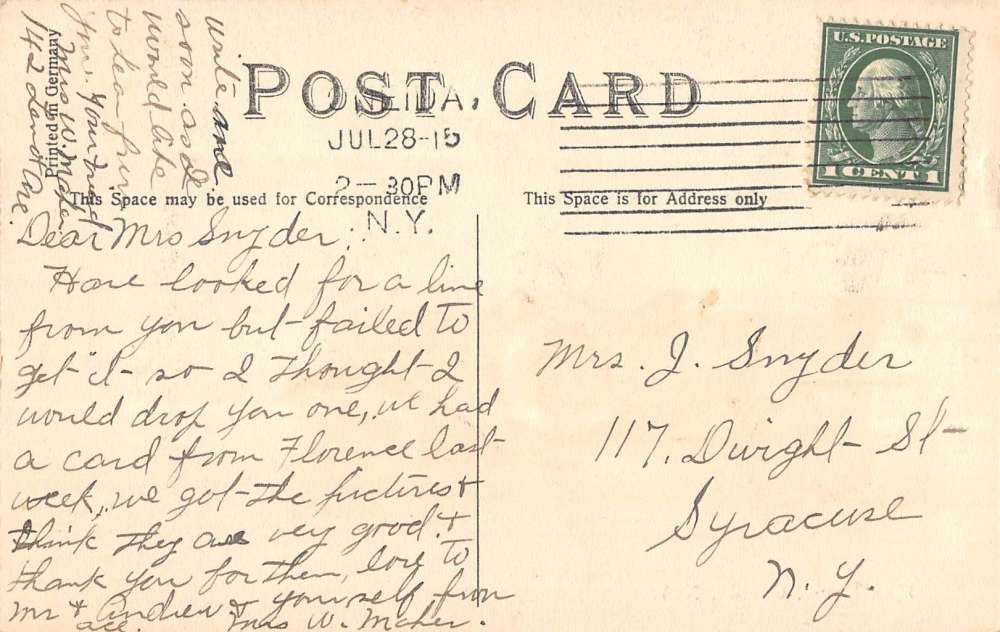 POST CARD
U.S. POSTAGE
1 CENT 1
ONEIDA,
JUL 28-15
2-30PM
N.Y.
Printed in Germany
This Space may be used for Correspondence
This Space is for Address only
Dear Mrs Snyder:
Have looked for a line
from you but failed to
get it so I thought I
would drop you one, we had
a card from Florence last
week, we got the pictures &
think they are very good &
thank you for them, love to
Mr & Andrew & yourself from
all. Mrs W. Maher.
write me
soon as I
would like
to hear from
you. Your friend
Mrs W. Maher
142 Ave.
Mrs. J. Snyder
117. Dwight St
Syracuse
N. Y.